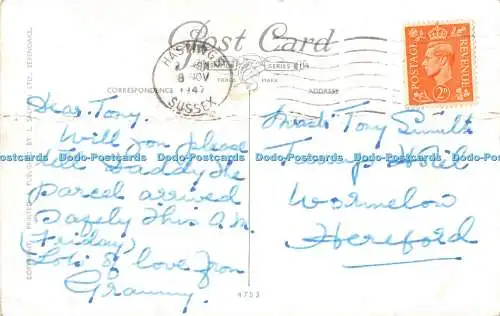 Post Card
CORRESPONDENCE
ADDRESS
TRADE MARK
SERIES
HASTINGS
8 NOV
1947
SUSSEX
POSTAGE
REVENUE
2D
Dear Tony.
Will you please
tell Daddy the
parcel arrived
safely this A.M.
(Friday)
Lots of love from
Granny.
Tony Smith
Wormelow
Hereford
4753
SEVENOAKS.
Dodo-Postcards Dodo-Postcards Dodo-Postcards Dodo-Postcards Dodo-Postcards Dodo-Postcards